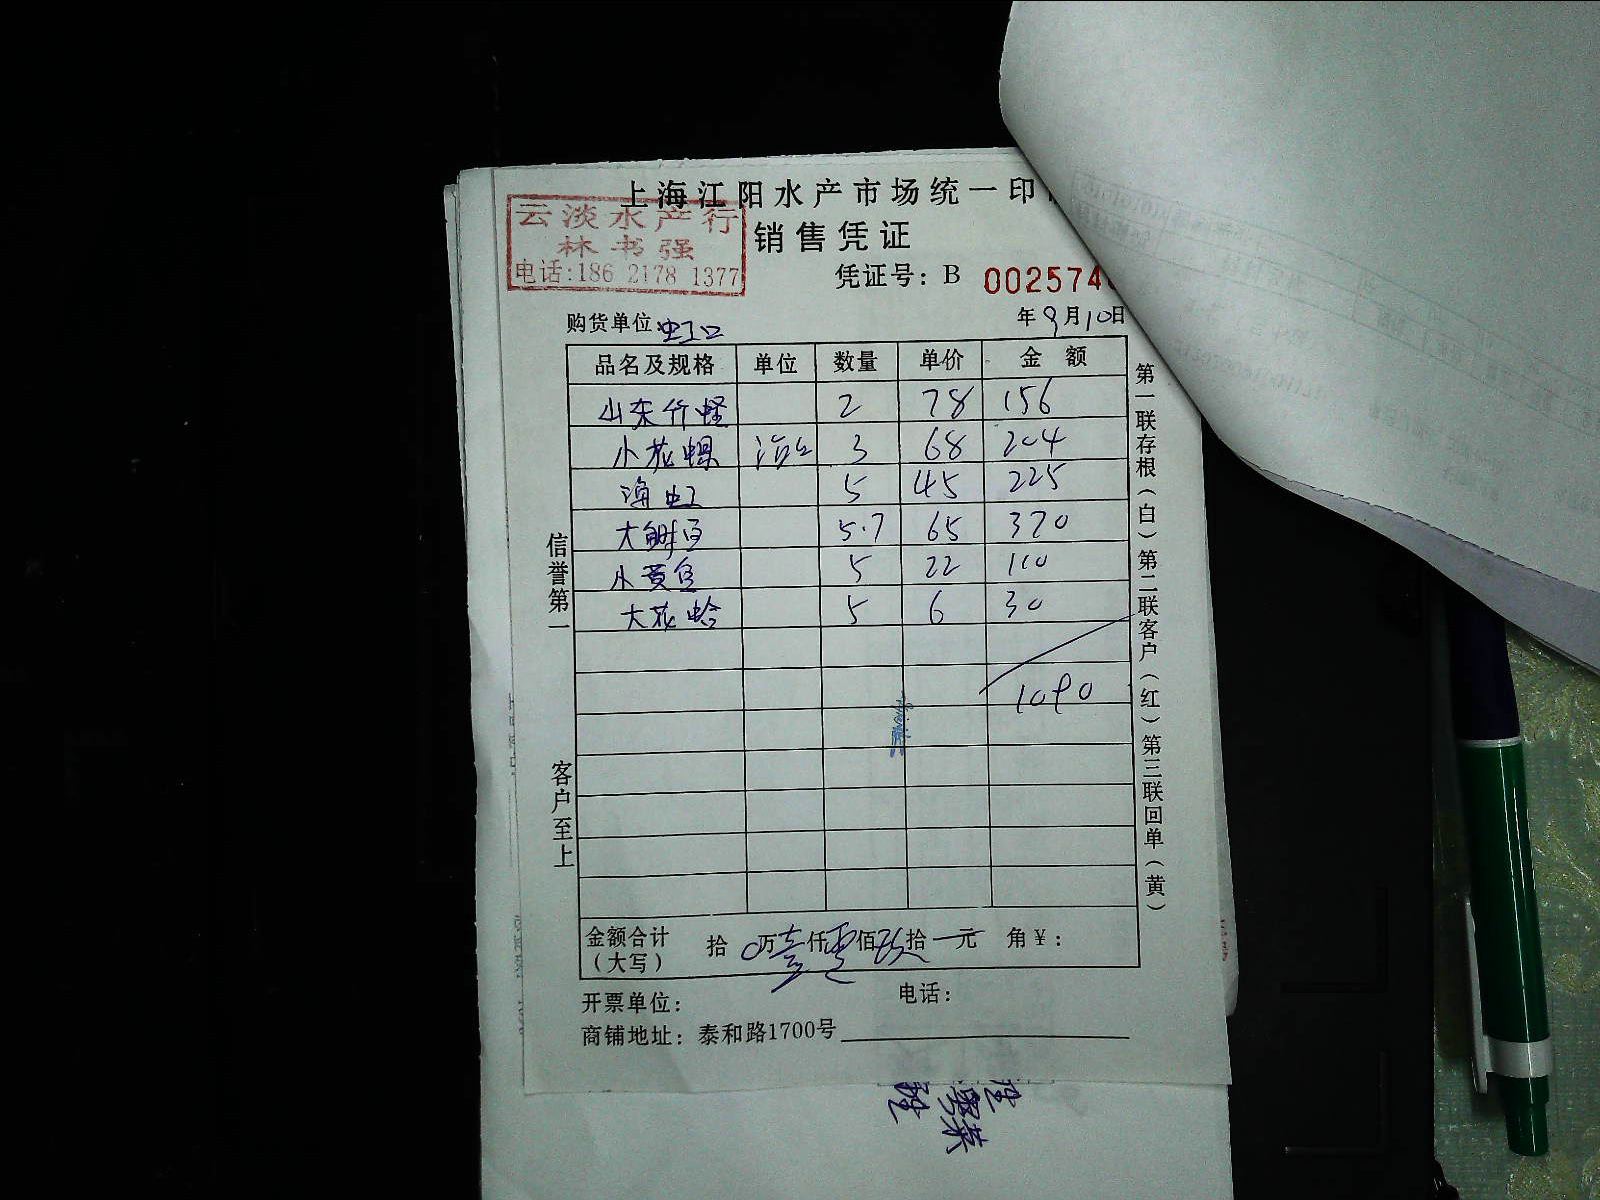 上海江阳水产市场统一印
云淡水产行
林书强
电话:186 2178 1377
销售凭证
凭证号：B 002574
购货单位 虹口
年9月10日
品名及规格 单位 数量 单价 金额
山东竹蛏 2 78 156
小花螺 3 68 204
海虹 5 45 225
大鲥鱼 5.7 65 370
小黄鱼 5 22 110
大花蛤 5 6 30
1090
金额合计（大写） 拾 0万壹仟零佰玖拾 元 角￥：
开票单位： 电话：
商铺地址：泰和路1700号
信誉第一
客户至上
第一联存根（白）第二联客户（红）第三联回单（黄）